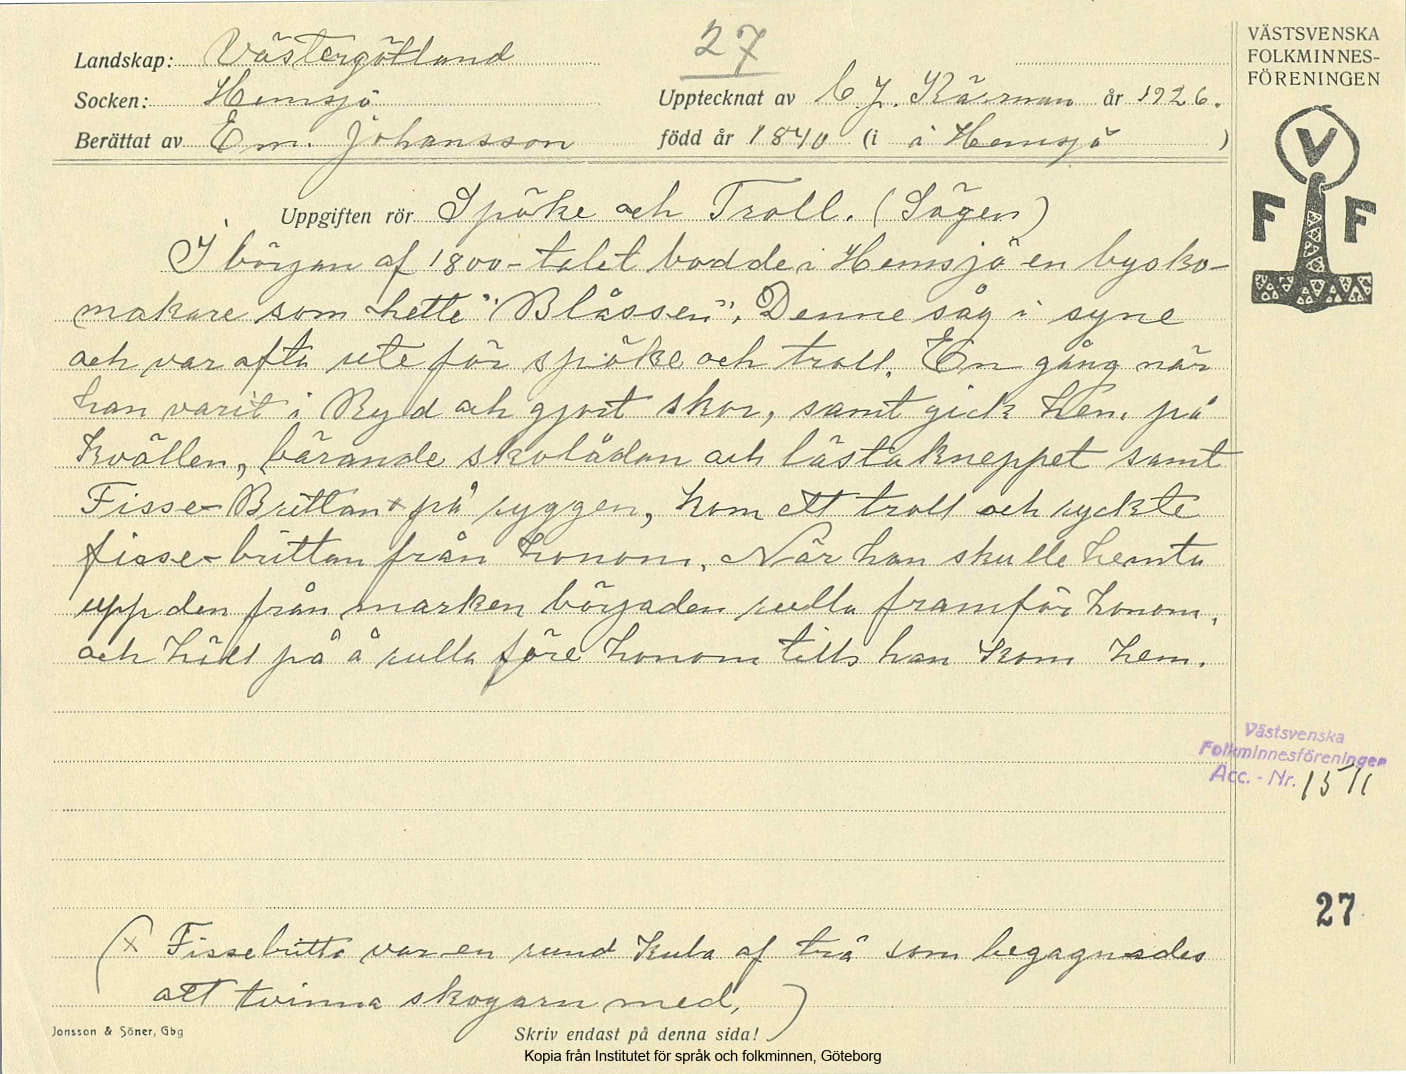 27
VÄSTSVENSKA
FOLKMINNES-
FÖRENINGEN
V
F F
Landskap: Västergötland
Socken: Hemsjö
Upptecknat av C. J. Kärman år 1926.
Berättat av Em. Johansson
född år 1840 (i i Hemsjö )
Uppgiften rör Spöke och Troll. (Sägen)
I början af 1800-talet bodde i Hemsjö en bysko-
makare som hette "Blåssen". Denne såg i syne
och var ofta ute för spöke och troll. En gång när
han varit i Ryd och gjort skor, samt gick hem på
kvällen, bärande skolådan och lästakneppet samt
Fisse-Brittan x på ryggen, kom ett troll och ryckte
fisse-brittan från honom. När han skulle hemta
upp den från marken började den rulla framför honom,
och höll på å rulla före honom tills han kom hem.
Västsvenska
Folkminnesföreningen
Acc. - Nr. 1511
27
(x Fissebritta var en rund kula af trä som begagnades
att tvinna skogarn med, )
Jonsson & Söner, Gbg
Skriv endast på denna sida!
Kopia från Institutet för språk och folkminnen, Göteborg